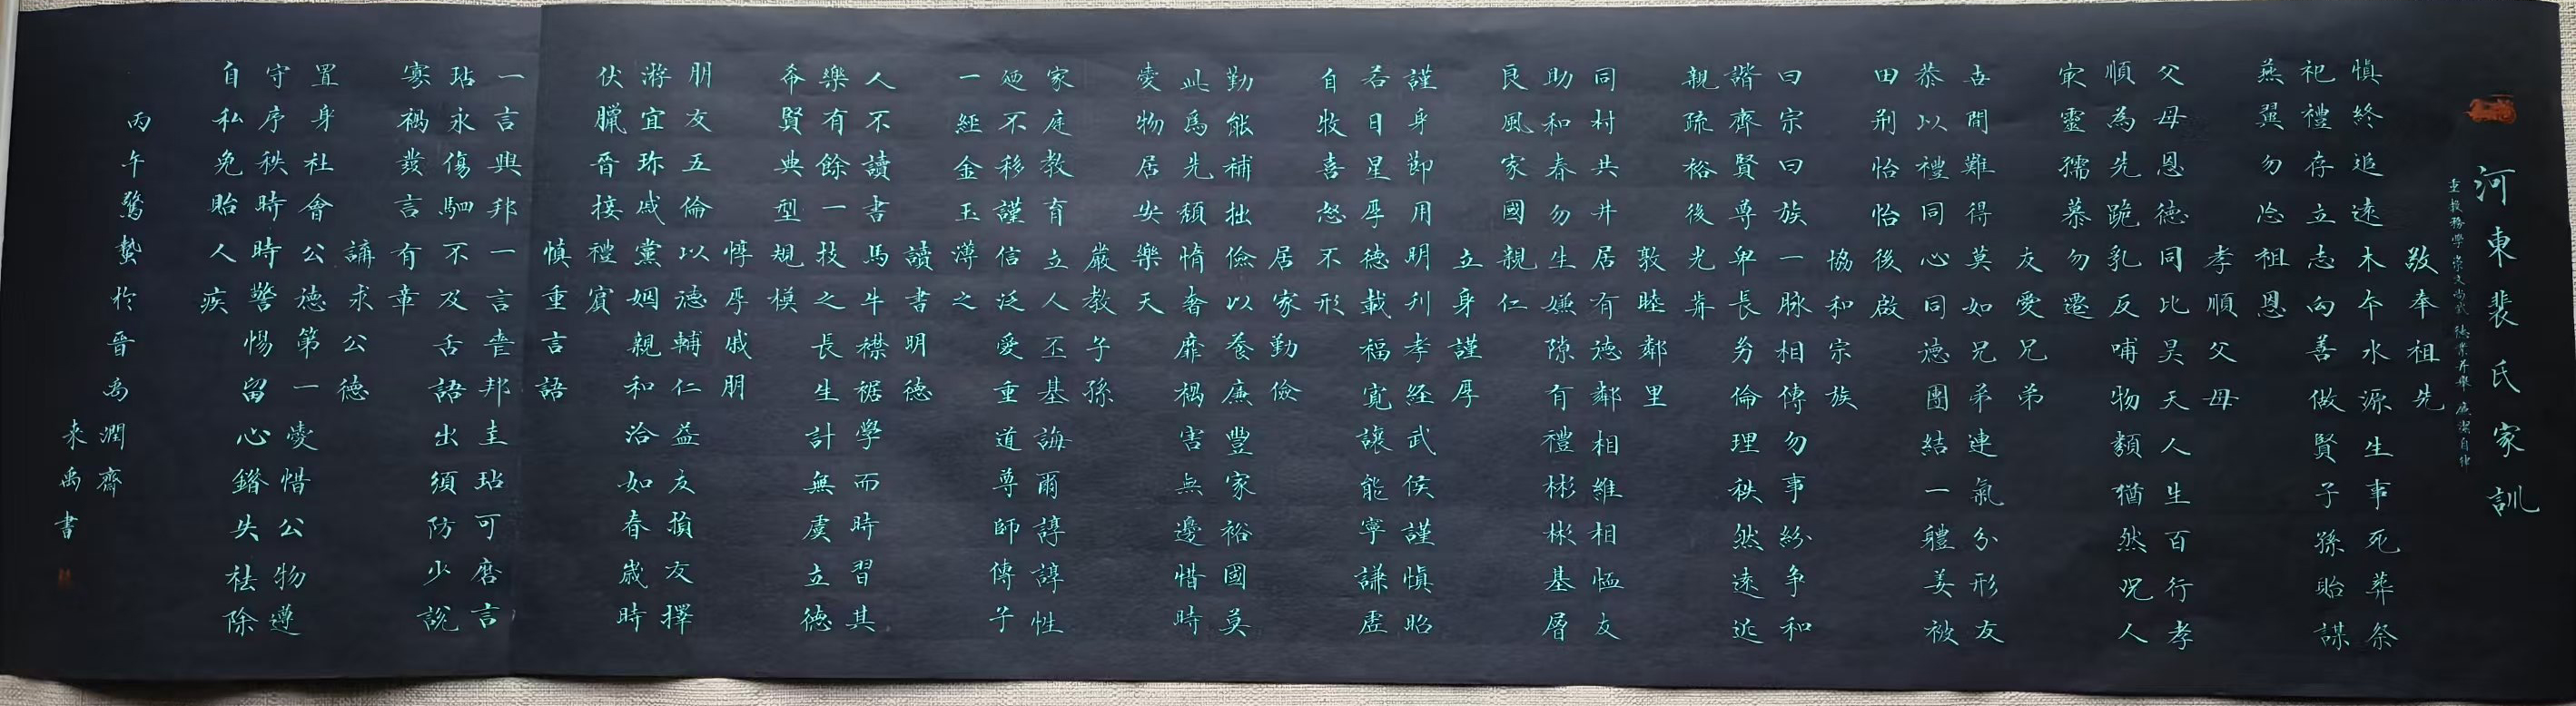 河東裴氏家訓
重教務學 崇文尚武 德業并舉 廉潔自律
敬奉祖先
慎終追遠木本水源生事死葬祭
祀禮存立志向善做賢子孫貽謀
燕翼勿忘祖恩
孝順父母
父母恩德同比昊天人生百行孝
順為先跪乳反哺物類猶然况人
最靈孺慕勿遷
友愛兄弟
世間難得莫如兄弟連氣分形友
恭以禮同心同德團結一體姜被
田荆怡怡後啟
協和宗族
曰宗曰族一脉相傳勿事紛争和
諧齊賢尊卑長幼倫理秩然遠近
親疏裕後光前
敦睦鄰里
同村共井居有德鄰相維相恤友
助和春勿生嫌隙有禮彬彬基層
良風家國親仁
立身謹厚
謹身節用明刊孝経武侯謹慎昭
若日星厚德載福寬讓能寧謙虛
自牧喜怒不形
居家勤儉
勤能補拙儉以養廉豐家裕國莫
此爲先頹惰奢靡禍害無邊惜時
愛物居安樂天
嚴教子孫
家庭教育立人丕基誨爾諄諄性
廼不移謹信泛愛重道尊師傳子
一經金玉薄之
讀書明德
人不讀書馬牛襟裾學而時習其
樂有餘一技之長生計無虞立德
希賢典型規模
惇厚戚朋
朋友五倫以德輔仁益友損友擇
游宜珎戚黨姻親和洽如春歲時
伏臘晉接禮賓
慎重言語
一言興邦一言喪邦圭玷可磨言
玷永傷駟不及舌語出須防少說
寡禍發言有章
講求公德
置身社會公德第一愛惜公物遵
守序秩時時警惕留心錯失祛除
自私免貽人疾
丙午驚蟄於晉禹潤齋
来禹書